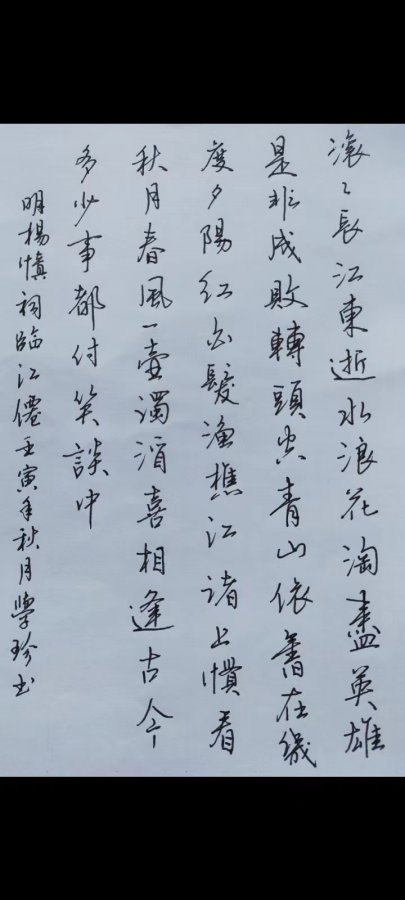 滾〻長江東逝水浪花淘盡英雄
是非成敗轉頭空青山依舊在幾
度夕陽紅白髮漁樵江渚上慣看
秋月春風一壺濁酒喜相逢古今
多少事都付笑談中
明楊慎詞臨江僊壬寅年秋月學珍书